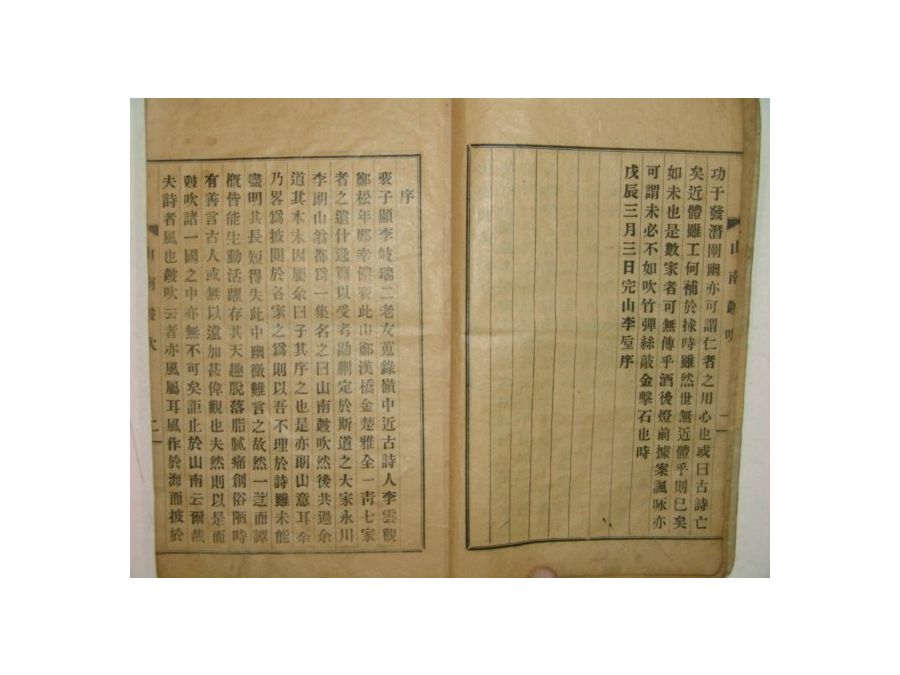 功于發潛闡幽亦可謂仁者之用心也或曰古詩亡
矣近體雖工何補於捄時雖然世無近體乎則已矣
如未也是數家者可無傳乎酒後燈前據案諷咏亦
可謂未必不如吹竹彈絲敲金擊石也時
戊辰三月三日完山李㙆序
山南鼓吹
一
序
裵子顯李岐瑞二老友蒐錄嶺中近古詩人李雲觀
鄭松年鄭幸儂裵此山鄭漢橋金楚雅全一靑七家
者之遺什逸篇以受考勘刪定於斯道之大家永川
李朗山翁都爲一集名之曰山南鼓吹然後共過余
道其本末因屬余曰子其序之也是亦朗山意耳余
乃畧爲披閱於各家之爲則以吾不理於詩雖未能
盡明其長短得失此中幽微難言之故然一遑而譚
槪皆能生動活躍存其天趣脫落脂膩痛創俗陋時
有善言古人或無以遠加甚偉觀也夫然則以是而
鼓吹諸一國之中亦無不可矣詎止於山南云爾哉
夫詩者風也鼓吹云者亦風屬耳風作於海而披於
山南鼓吹